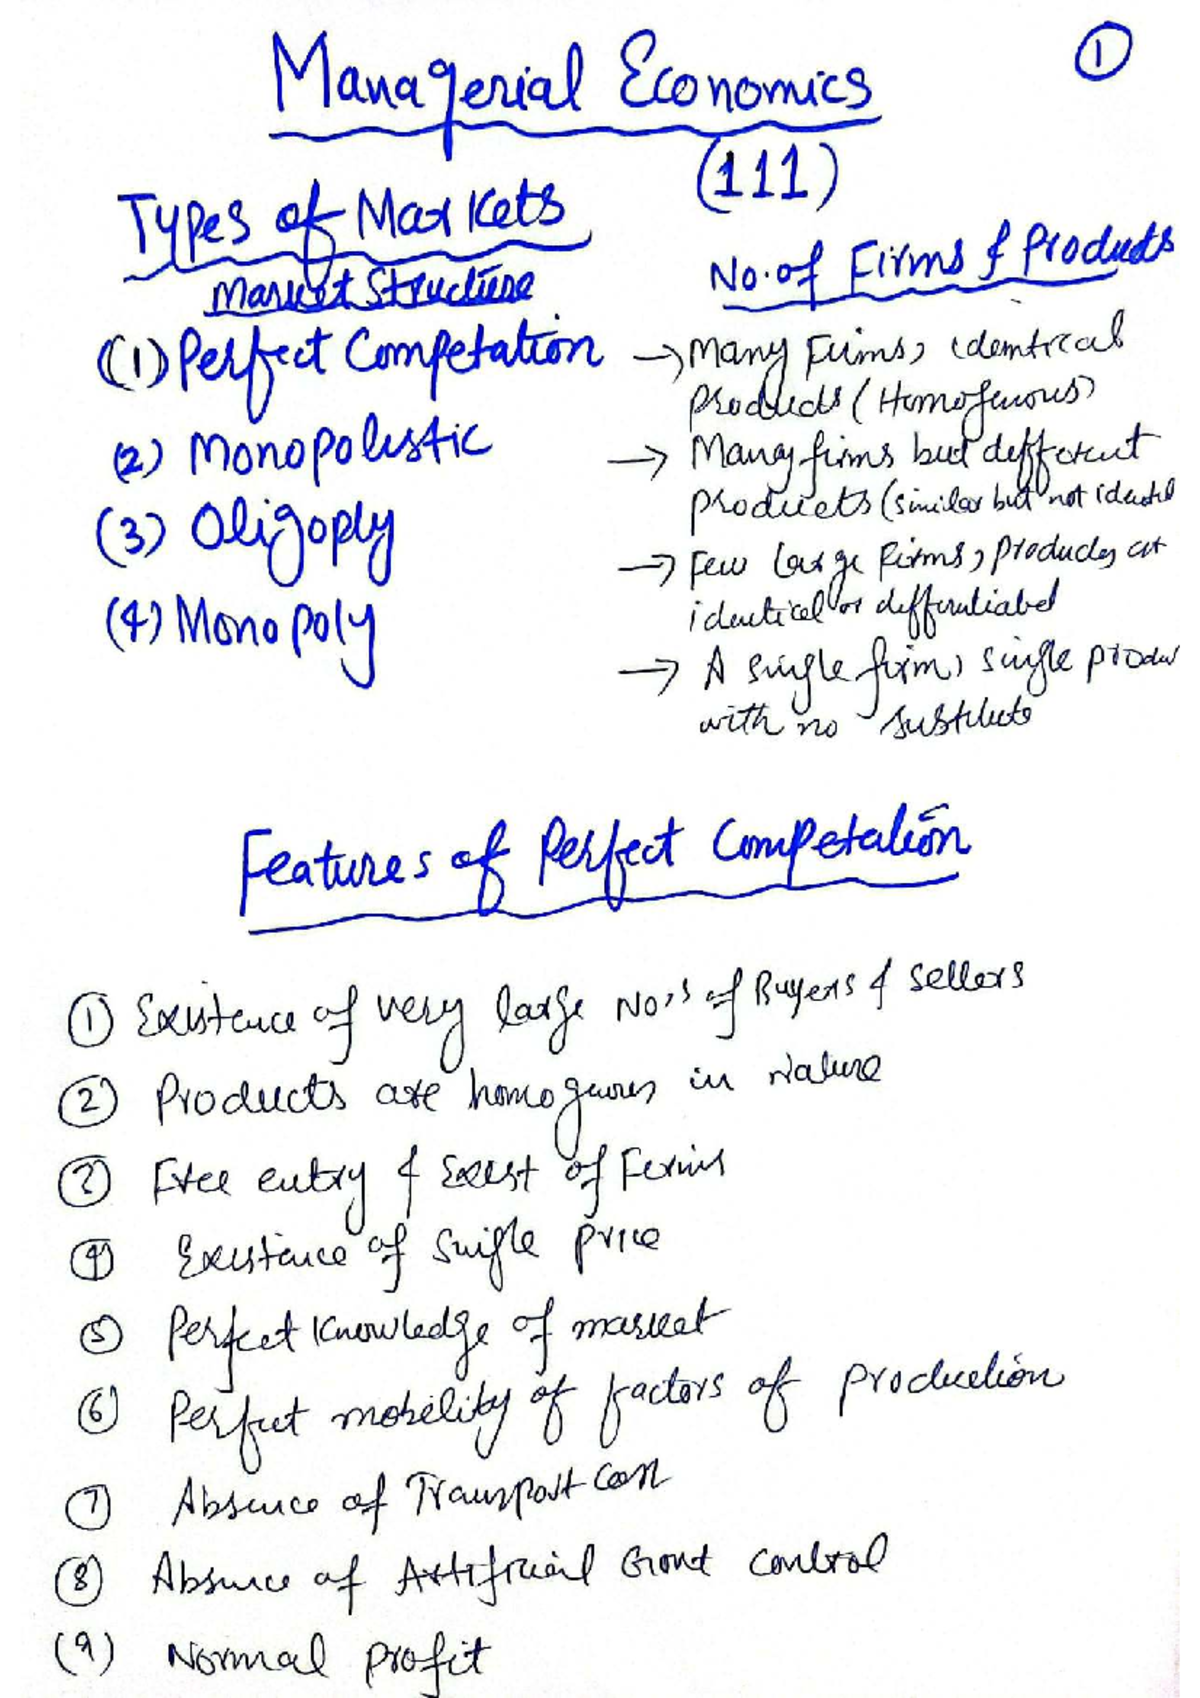 Managerial Economics
1
(111)
Types of Markets
Market Structure
No. of Firms & Products
(1) Perfect Competation
→ Many Firms, identical
Products (Homogenous)
(2) Monopolistic
→ Many firms but different
products (similar but not
(3) Oligoply
→ Few large firms, products
identical or differentiated
(4) Monopoly
→ A single firm, single
with no
Features of Perfect Competation
1 Existence of very large No's of Buyers & Sellers
2 Products are in Nature
3 Free entry & of Firms
4 Existence of Single Price
5 Perfect Knowledge of market
6 Perfect mobility of factors of production
7 Absence of Transport Cost
8 Absence of Artificial Govt control
(9) Normal profit